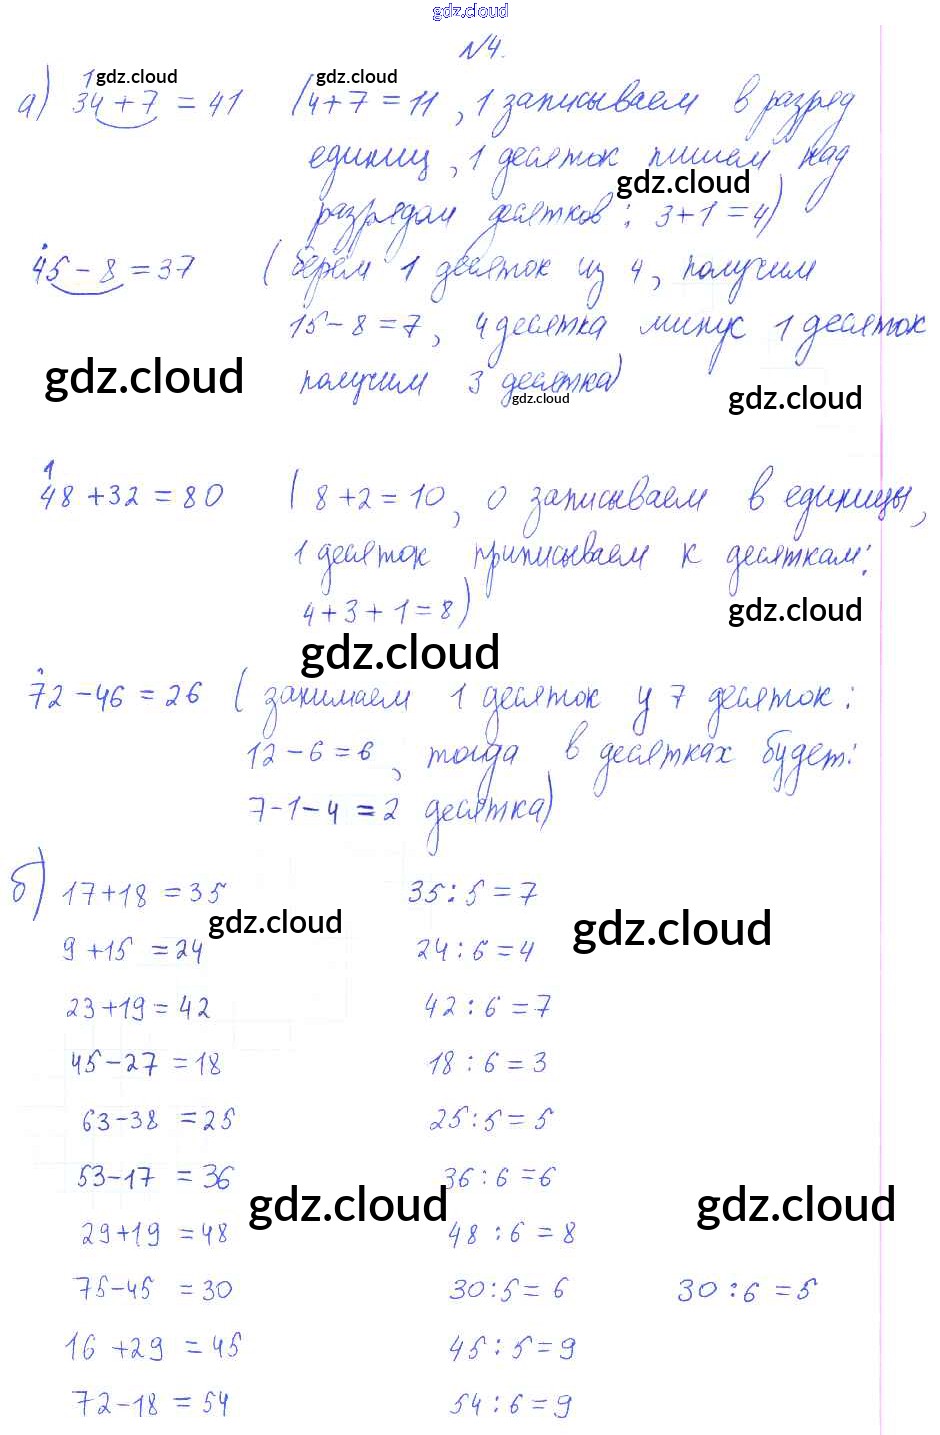 gdz.cloud
№4.
1 gdz.cloud gdz.cloud
а) 34+7 = 41 (4+7 = 11, 1 записываем в разряд
единиц, 1 десяток пишем над
gdz.cloud
разрядом десятков: 3+1=4)
45-8=37 (берём 1 десяток из 4, получим
15-8=7, 4 десятка минус 1 десяток
gdz.cloud
получим 3 десятка)
gdz.cloud gdz.cloud
1
48+32=80 (8+2=10, 0 записываем в единицы,
1 десяток приписываем к десяткам:
4+3+1=8)
gdz.cloud
gdz.cloud
72-46=26 (занимаем 1 десяток у 7 десяток:
12-6=6, тогда в десятках будет:
7-1-4=2 десятка)
б) 17+18=35 35:5=7
gdz.cloud gdz.cloud
9+15=24 24:6=4
23+19=42 42:6=7
45-27=18 18:6=3
63-38=25 25:5=5
53-17=36 36:6=6
gdz.cloud gdz.cloud
29+19=48 48:6=8
75-45=30 30:5=6 30:6=5
16+29=45 45:5=9
72-18=54 54:6=9